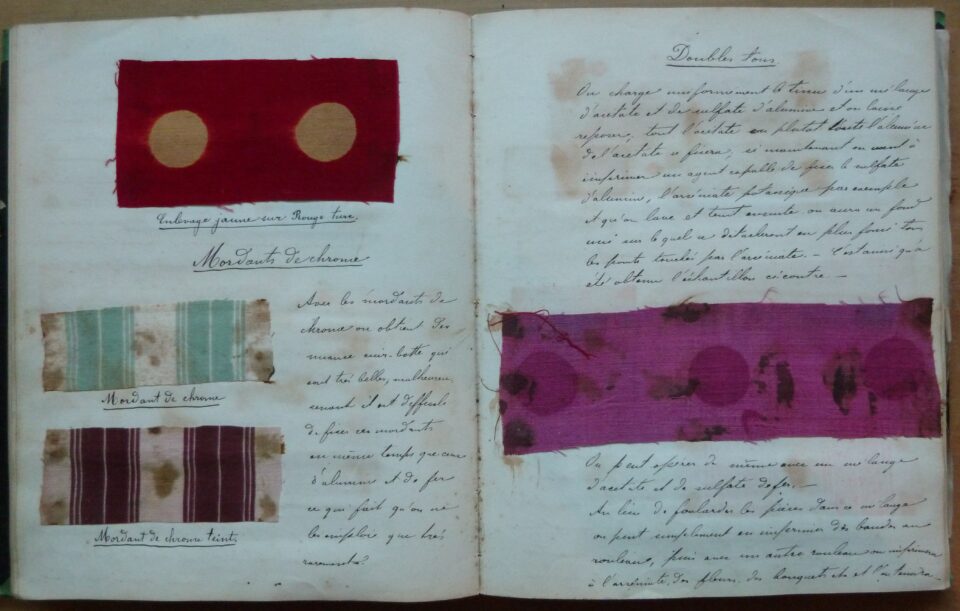 Enlevage jaune sur Rouge turc
Mordants de chrome
Mordant de chrome
Mordant de chrome teint
Avec les mordants de
chrome on obtient des
nuances cuir-botte qui
sont très belles, malheureu
sement il est difficile
de fixer ces mordants
en même temps que ceux
d'alumine et de fer
ce qui fait qu'on ne
les emploie que très
rarement
Doubles tons
On charge uniformément le tissu d'un mélange
d'acétate et de sulfate d'alumine et on laisse
reposer, tout l'acétate ou plutot toute l'alumine
de l'acétate se fixera, si maintenant on vient à
imprimer un agent capable de fixer le sulfate
d'alumine, l'arséniate potassique par exemple
et qu'on lave et teint ensuite on aura un fond
uni sur le quel se détacheront en plus foncé tous
les points touchés par l'arseniate. — C'est ainsi qu'a
été obtenu l'échantillon ci contre. —
On peut opérer de même avec un mélange
d'acétate et de sulfate de fer. —
Au lieu de foularder les pièces dans ce mélange
on peut simplement en imprimer des bandes au
rouleau, puis avec un autre rouleau on imprimera
à l'arséniate, des fleurs, des bouquets etc et l'on teindra